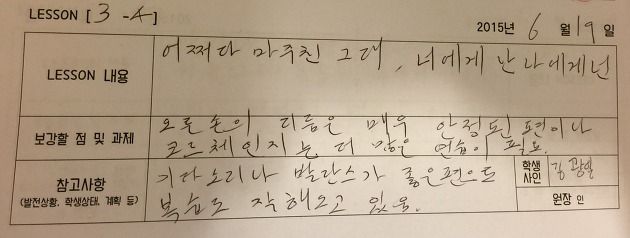 LESSON [3-4]
2015년 6월 19일
LESSON 내용
어쩌다 마주친 그대, 너에게 난 나에게 넌
보강할 점 및 과제
오른손의 리듬은 매우 안정된 편이나
코르체인지는 더 많은 연습이 필요.
참고사항
(발전상황, 학생상태, 계획 등)
기타소리나 발란스가 좋은편으로
복습도 잘해오고 있음.
학생
사인
김광일
원장 인